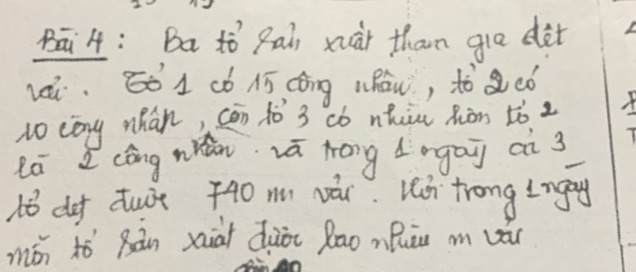 Bài 4 : Ba tổ sản xuất tham gia dệt
vải. Tổ 1 có 15 công nhân, tổ 2 có
10 công nhân, còn tổ 3 có nhiều hơn tổ 2
là 2 công nhân và trong 1 ngày cả 3
tổ dệt được 740 m vải. Hỏi trong 1 ngày
mỗi tổ sản xuất được bao nhiêu m vải